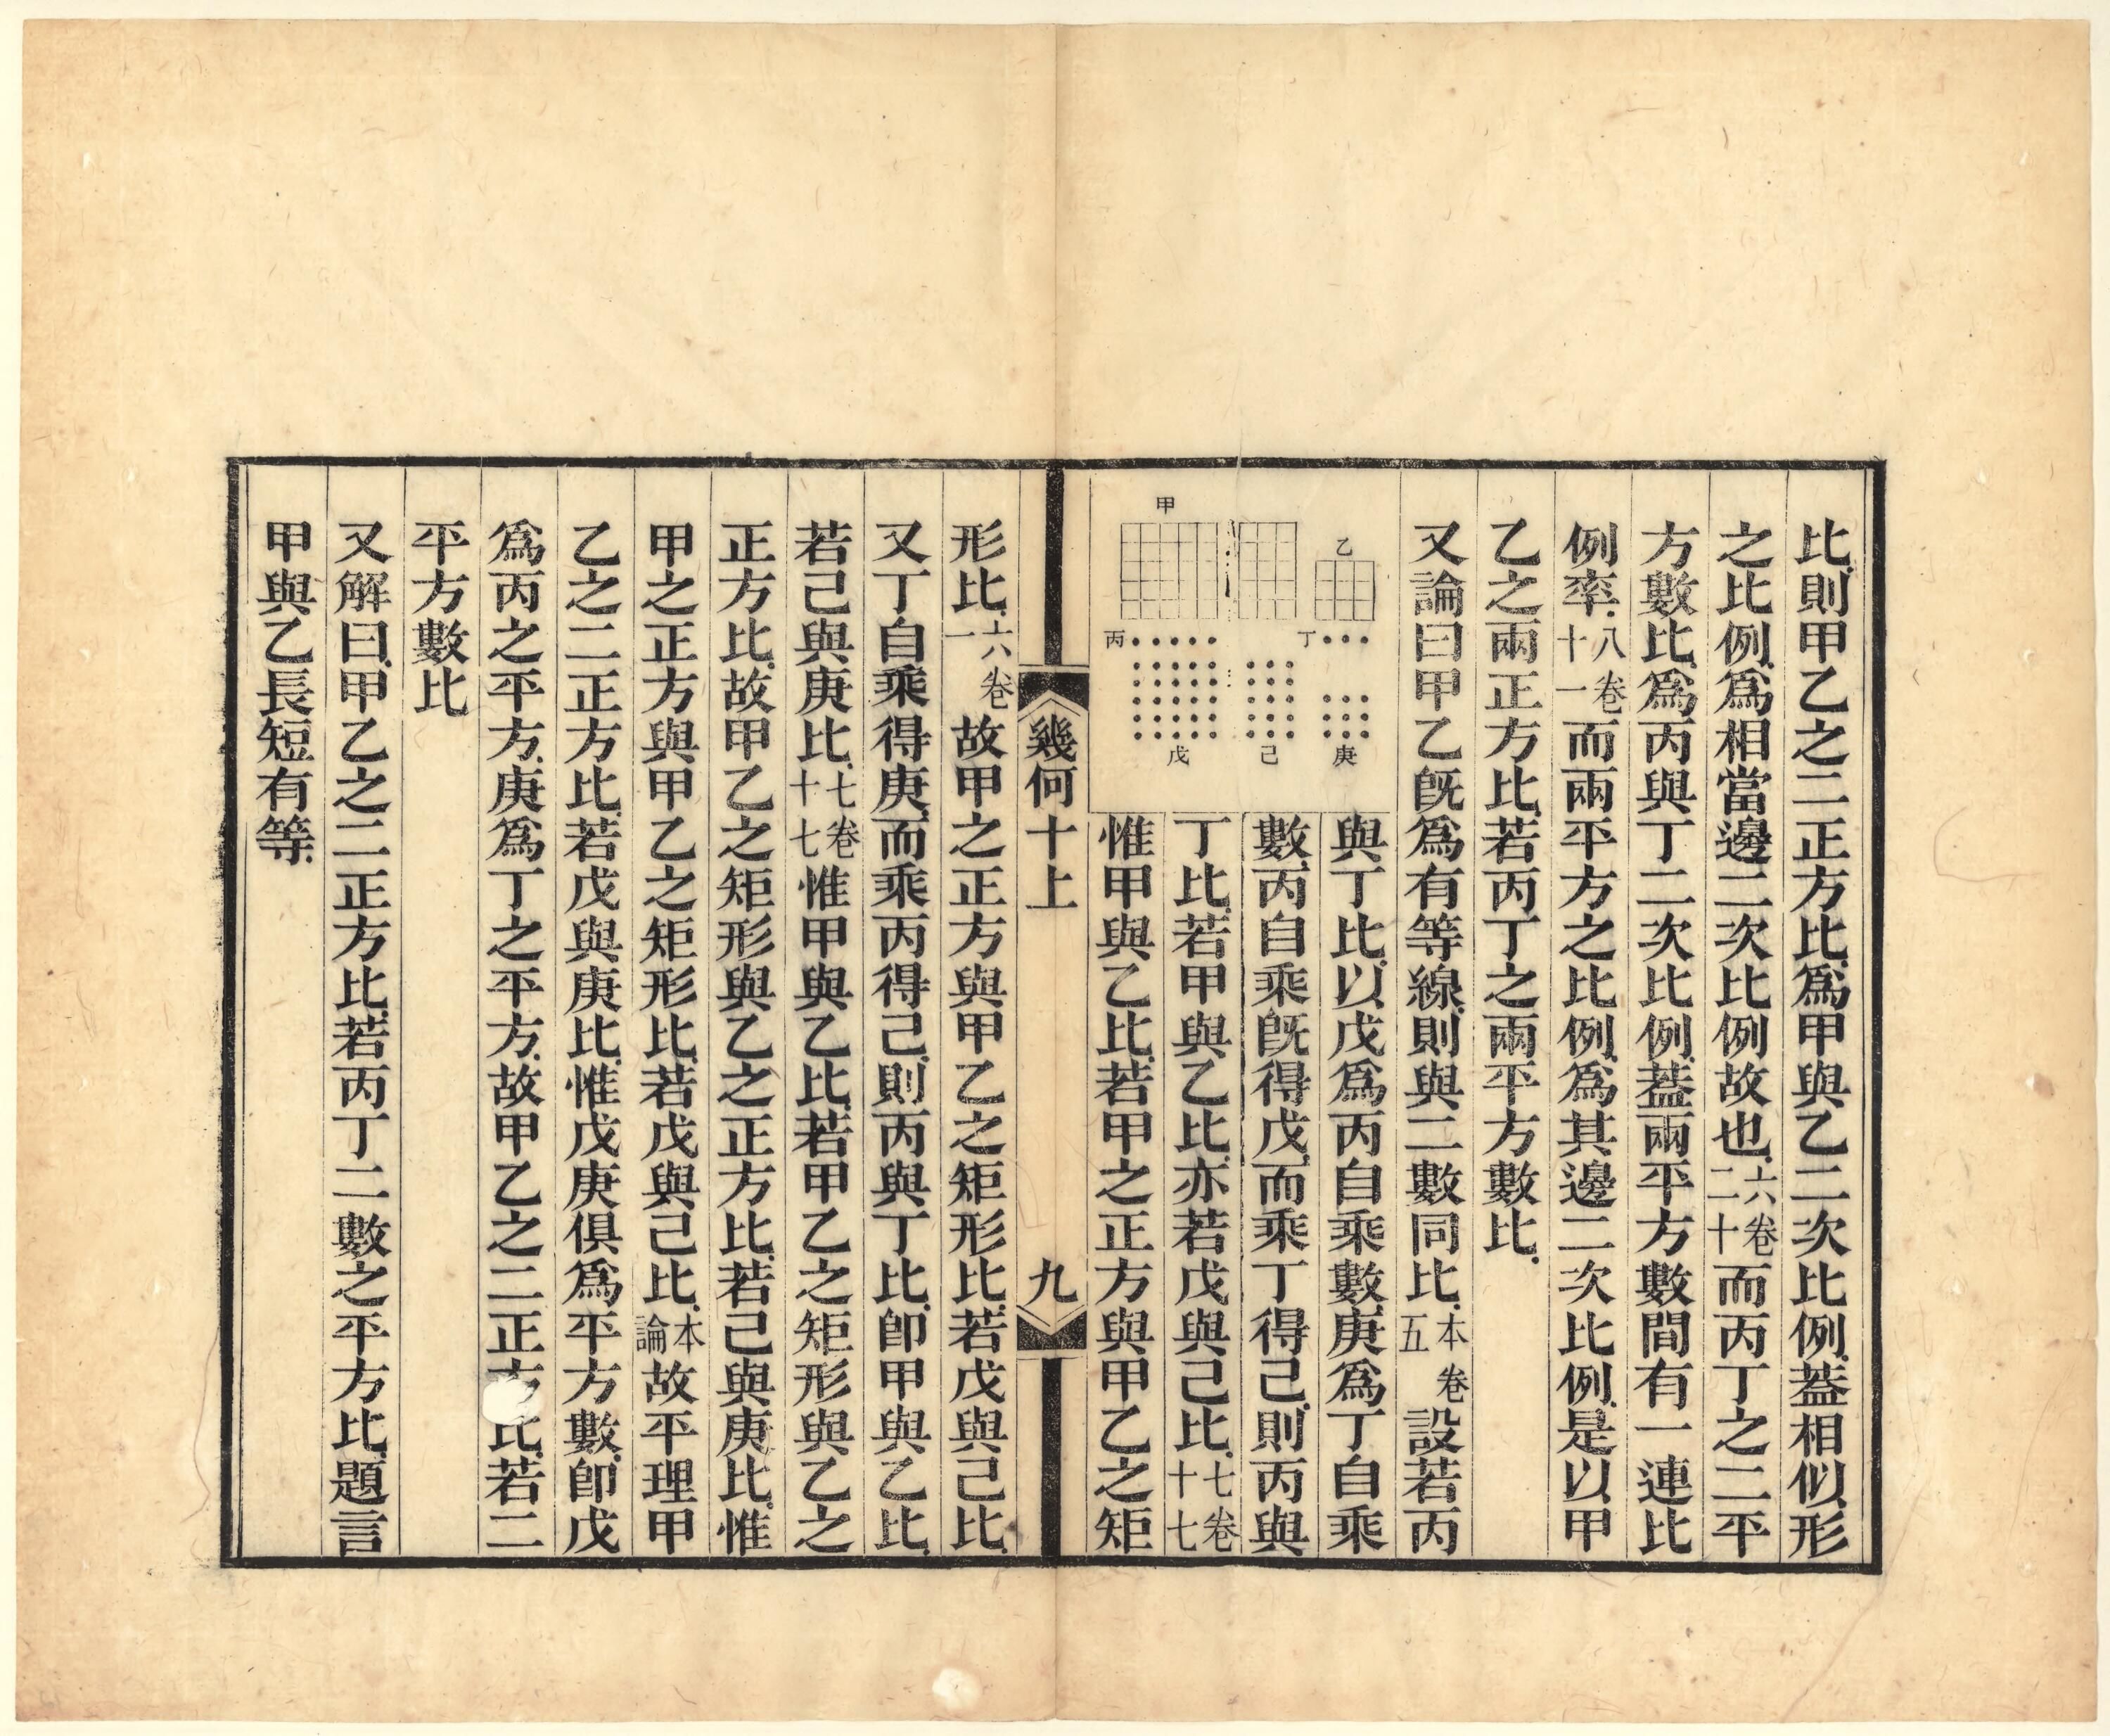 比則甲乙之二正方比爲甲與乙二次比例蓋相似形
之比例爲相當邊二次比例故也六卷二十而丙丁之二平
方數比爲丙與丁二次比例蓋兩平方數間有一連比
例率八卷十一而兩平方之比例爲其邊二次比例是以甲
乙之兩正方比若丙丁之兩平方數比
又論曰甲乙旣爲有等線則與二數同比本卷五設若丙
甲
乙
丙
丁
戊
己
庚
與丁比以戊爲丙自乘數庚爲丁自乘
數丙自乘旣得戊而乘丁得己則丙與
丁比若甲與乙比亦若戊與己比七卷十七
惟甲與乙比若甲之正方與甲乙之矩
幾何十上
九
形比六卷一故甲之正方與甲乙之矩形比若戊與己比
又丁自乘得庚而乘丙得己則丙與丁比卽甲與乙比
若己與庚比七卷十七惟甲與乙比若甲乙之矩形與乙之
正方比故甲乙之矩形與乙之正方比若己與庚比惟
甲之正方與甲乙之矩形比若戊與己比本論故平理甲
乙之二正方比若戊與庚比惟戊庚俱爲平方數卽戊
爲丙之平方庚爲丁之平方故甲乙之二正方比若二
平方數比
又解曰甲乙之二正方比若丙丁二數之平方比題言
甲與乙長短有等